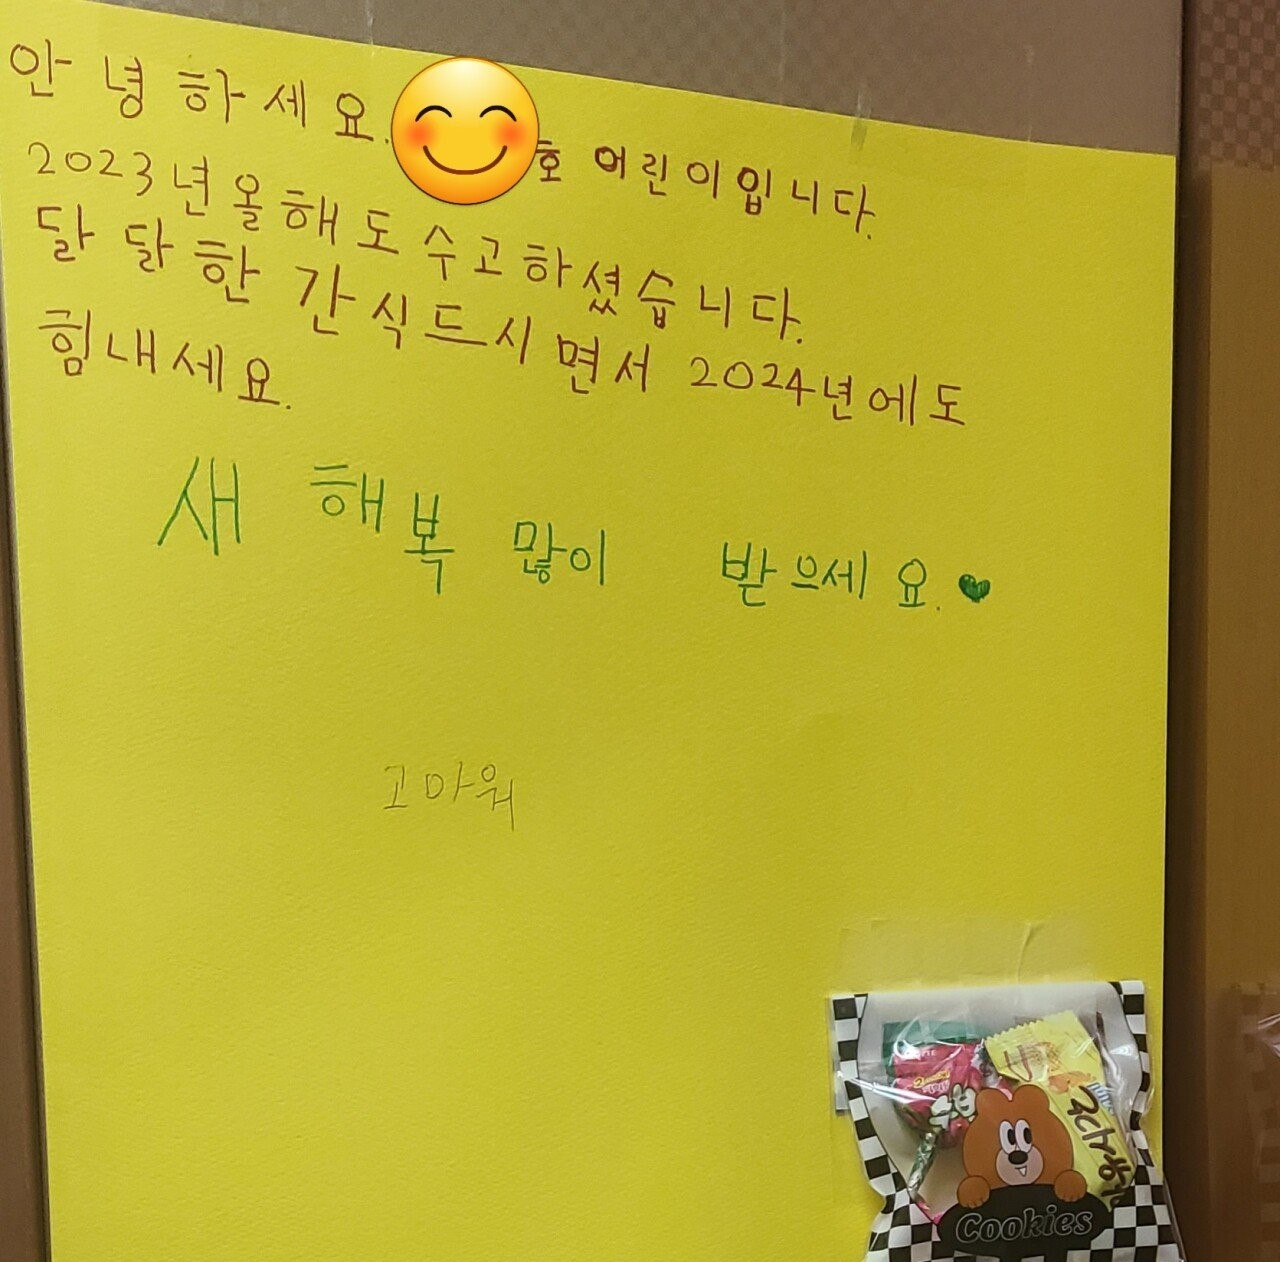 안녕하세요. 호 어린이입니다.
2023년 올해도 수고하셨습니다.
달달한 간식드시면서 2024년에도
힘내세요.
새해복 많이 받으세요.
고마워
Cookies